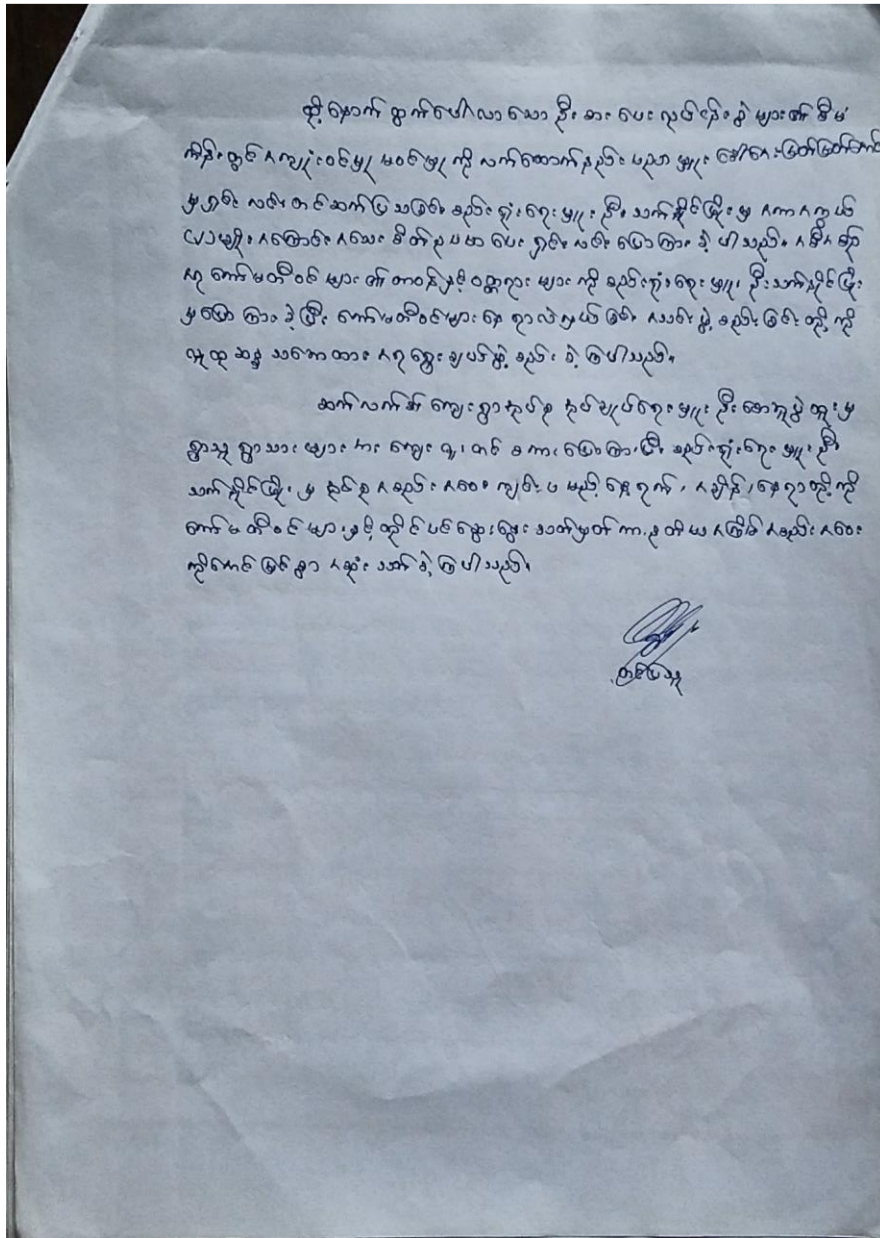 ထို့နောက် ထွက်ပေါ်လာသော ဦးစားပေးလုပ်ငန်းခွဲများ၏ စီမံ
ကိန်းတွင် အကျုံးဝင်မှု မဝင်မှုကို လက်ထောက်နည်းပညာမှူး ဒေါ်အေးမြတ်မြတ်အောင်
မှ ရှင်းလင်းတင်ဆက်ပြသခြင်း၊ စည်းရုံးရေးမှူး ဦးသက်နိုင်ဖြိုးမှ အကာအကွယ်
ယာမျိုး အကြောင်း အသေးစိတ် ဥပမာပေး ရှင်းလင်းပြောကြားခဲ့ပါသည်။ အဓိကဆုံး
ကော်မတီဝင်များ၏ တာဝန်နှင့်ဝတ္တရားများကို စည်းရုံးရေးမှူး ဦးသက်နိုင်ဖြိုး
မှ ပြောကြားခဲ့ပြီး ကော်မတီဝင်များနေရာလဲလှယ်ခြင်း၊ အသစ်ဖွဲ့စည်းခြင်းတို့ကို
လူထုဆန္ဒ သဘောထားအရ ရွေးချယ်ဖွဲ့စည်းခဲ့ကြပါသည်။
ဆက်လက်၍ ကျေးရွာအုပ်စု အုပ်ချုပ်ရေးမှူး ဦးစောဘွဲထူးမှ
ရွာသူရွာသားများအား ကျေးဇူးတင်စကားပြောကြားပြီး စည်းရုံးရေးမှူး ဦး
သက်နိုင်ဖြိုးမှ နောက်အစည်းအဝေးကျင်းပမည့် နေ့ရက်၊ အချိန်၊ နေရာတို့ကို
ကော်မတီဝင်များနှင့် တိုင်ပင်ဆွေးနွေးသတ်မှတ်ကာ ဒုတိယအကြိမ် အစည်းအဝေး
ကို အောင်မြင်စွာ အဆုံးသတ်ခဲ့ကြပါသည်။
တင်ပြသူ